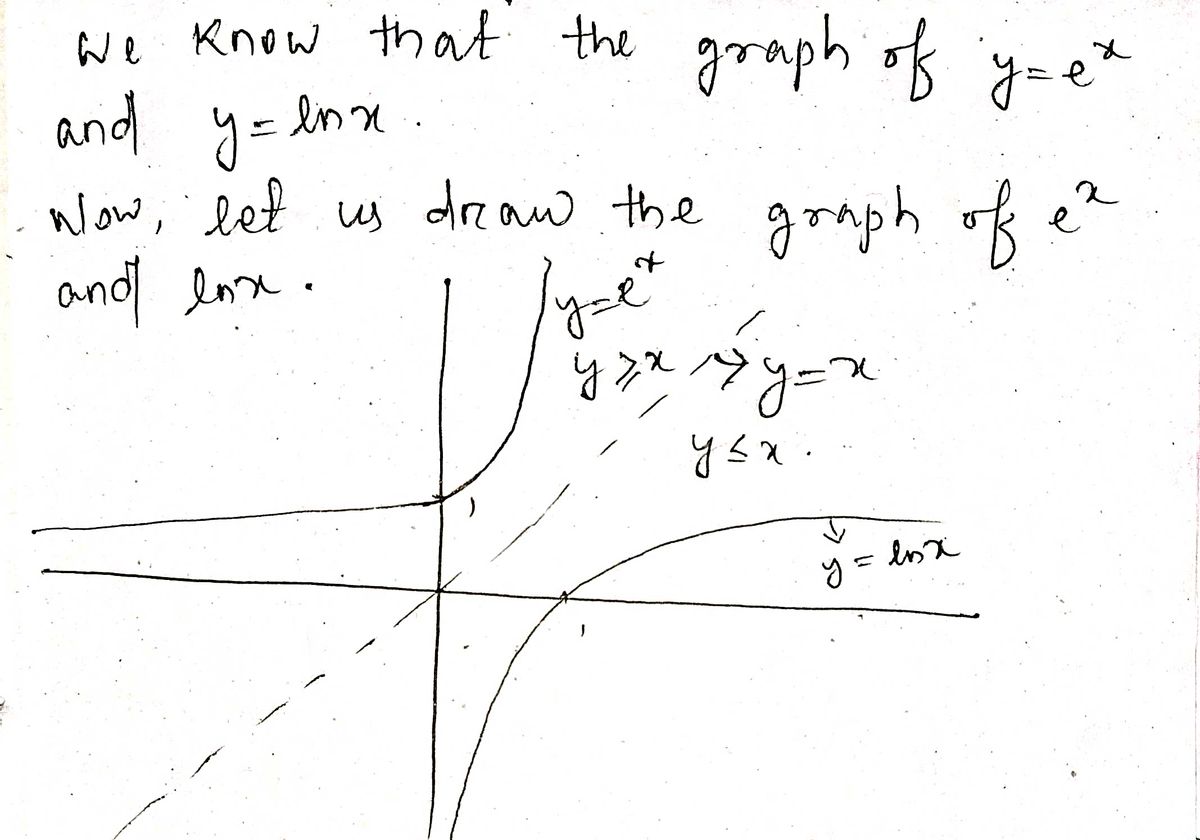 we know that the graph of y=eˣ
and y = lnx .
Now, let us draw the graph of eˣ
and lnx .
y=eˣ
y ⩾ x → y=x
y ≤ x .
1
y = lnx
1